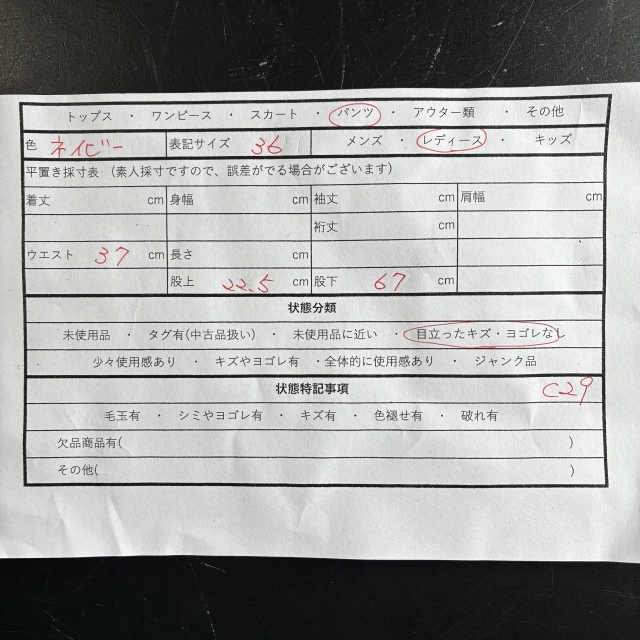 トップス ・ ワンピース ・ スカート ・ パンツ ・ アウター類 ・ その他
色 ネイビー 表記サイズ 36 メンズ ・ レディース ・ キッズ
平置き採寸表 (素人採寸ですので、誤差がでる場合がございます)
着丈 cm 身幅 cm 袖丈 cm 肩幅 cm
裄丈 cm
ウエスト 37 cm 長さ cm
股上 22.5 cm 股下 67 cm
状態分類
未使用品 ・ タグ有(中古品扱い) ・ 未使用品に近い ・ 目立ったキズ・ヨゴレなし
少々使用感あり ・ キズやヨゴレ有 ・全体的に使用感あり ・ ジャンク品
状態特記事項 C29
毛玉有 ・ シミやヨゴレ有 ・ キズ有 ・ 色褪せ有 ・ 破れ有
欠品商品有( )
その他( )